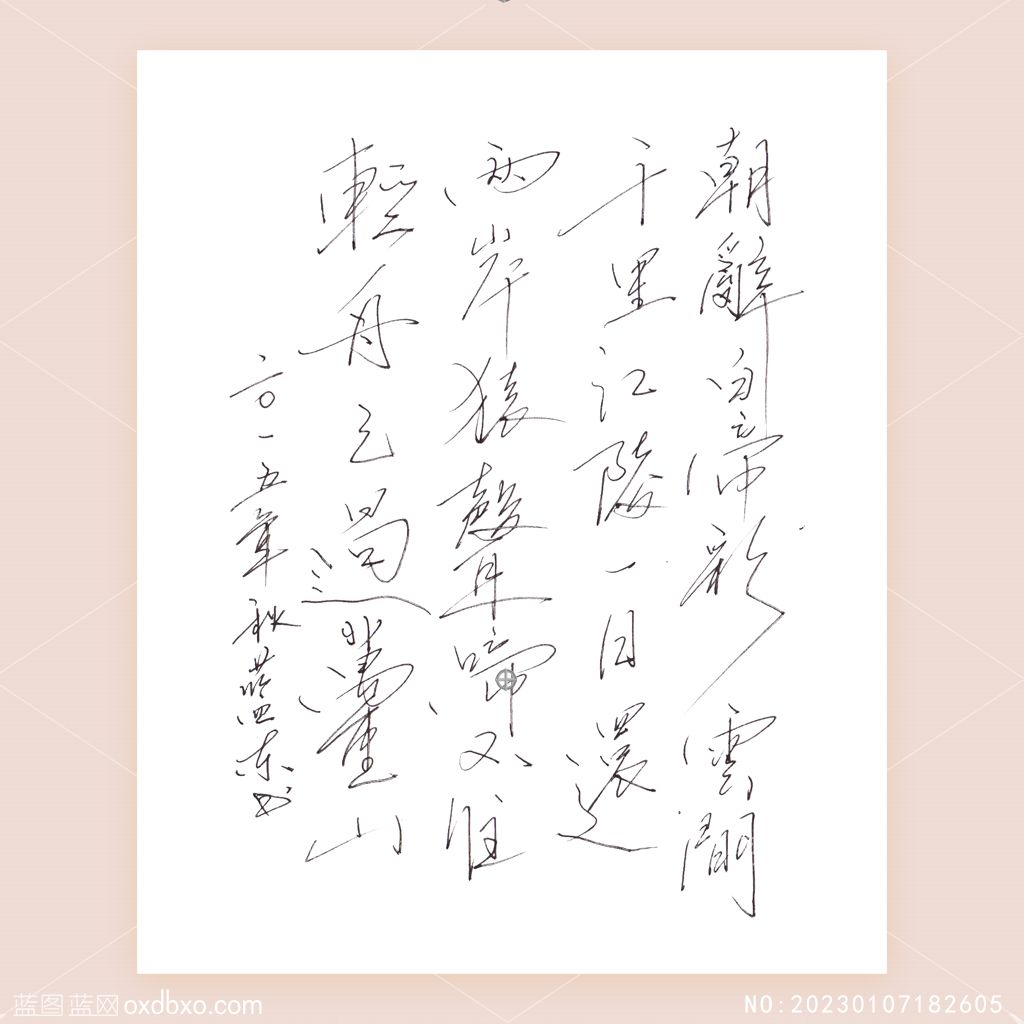 朝辭白帝彩雲間
千里江陵一日還
兩岸猿聲啼不住
輕舟已過萬重山
二〇一五年秋藍东书
蓝图蓝网 oxdbxo.com
NO:20230107182605